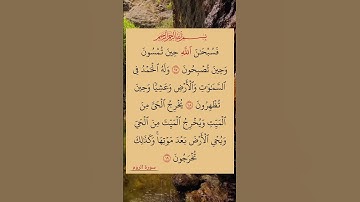 بسم الله الرحمن الرحيم
فَسُبْحَٰنَ ٱللَّهِ حِينَ تُمْسُونَ
وَحِينَ تُصْبِحُونَ ١٧ وَلَهُ ٱلْحَمْدُ فِى
ٱلسَّمَٰوَٰتِ وَٱلْأَرْضِ وَعَشِيًّا وَحِينَ
تُظْهِرُونَ ١٨ يُخْرِجُ ٱلْحَىَّ مِنَ
ٱلْمَيِّتِ وَيُخْرِجُ ٱلْمَيِّتَ مِنَ ٱلْحَىِّ
وَيُحْىِ ٱلْأَرْضَ بَعْدَ مَوْتِهَا ۚ وَكَذَٰلِكَ
تُخْرَجُونَ ١٩
سورة الروم